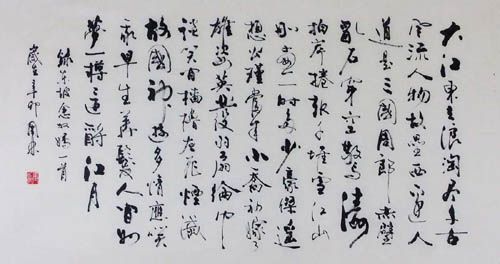 大江東去浪淘盡千古
風流人物故壘西邊人
道是三國周郎赤壁
亂石穿空驚濤
拍岸捲起千堆雪江山
如畫一時多少豪傑遙
想公瑾當年小喬初嫁了
雄姿英發羽扇綸巾
談笑間檣櫓灰飛煙滅
故國神遊多情應笑
我早生華髮人間如
夢一樽還酹江月
錄東坡念奴嬌一首
歲在辛卯